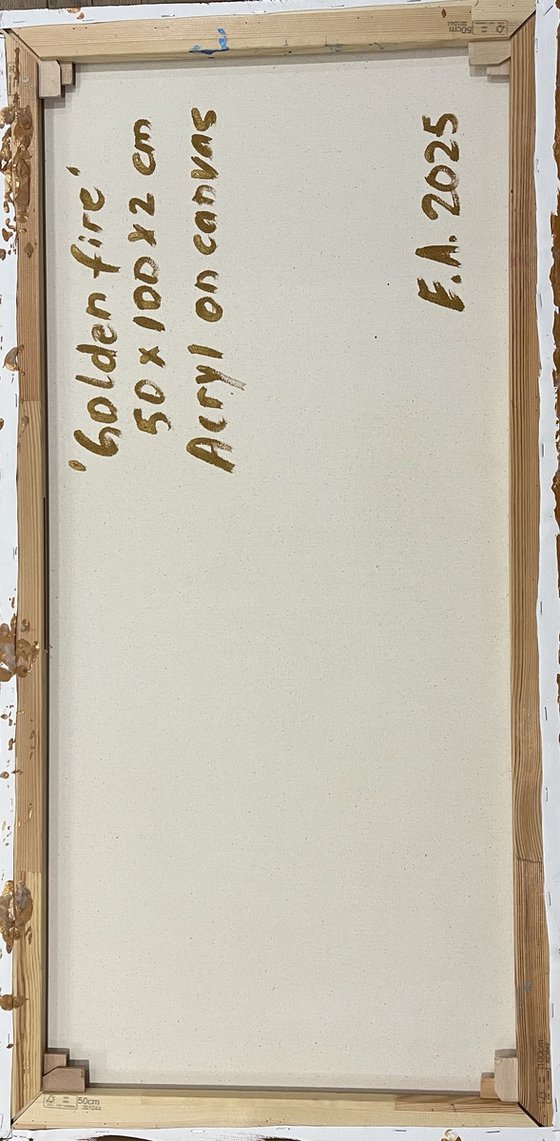 'Golden fire'
50 x 100 x 2 cm
Acryl on canvas
E.A. 2025
50cm
301044
50cm
301044
100cm